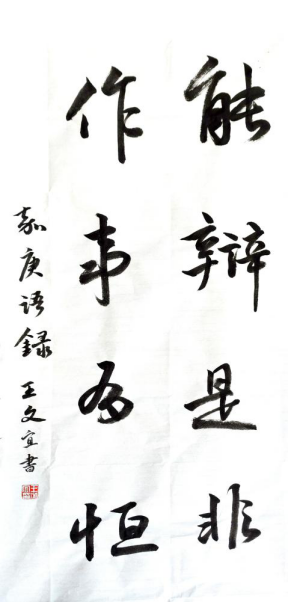 能辩是非
作事有恒
嘉庚语録 王文宜書